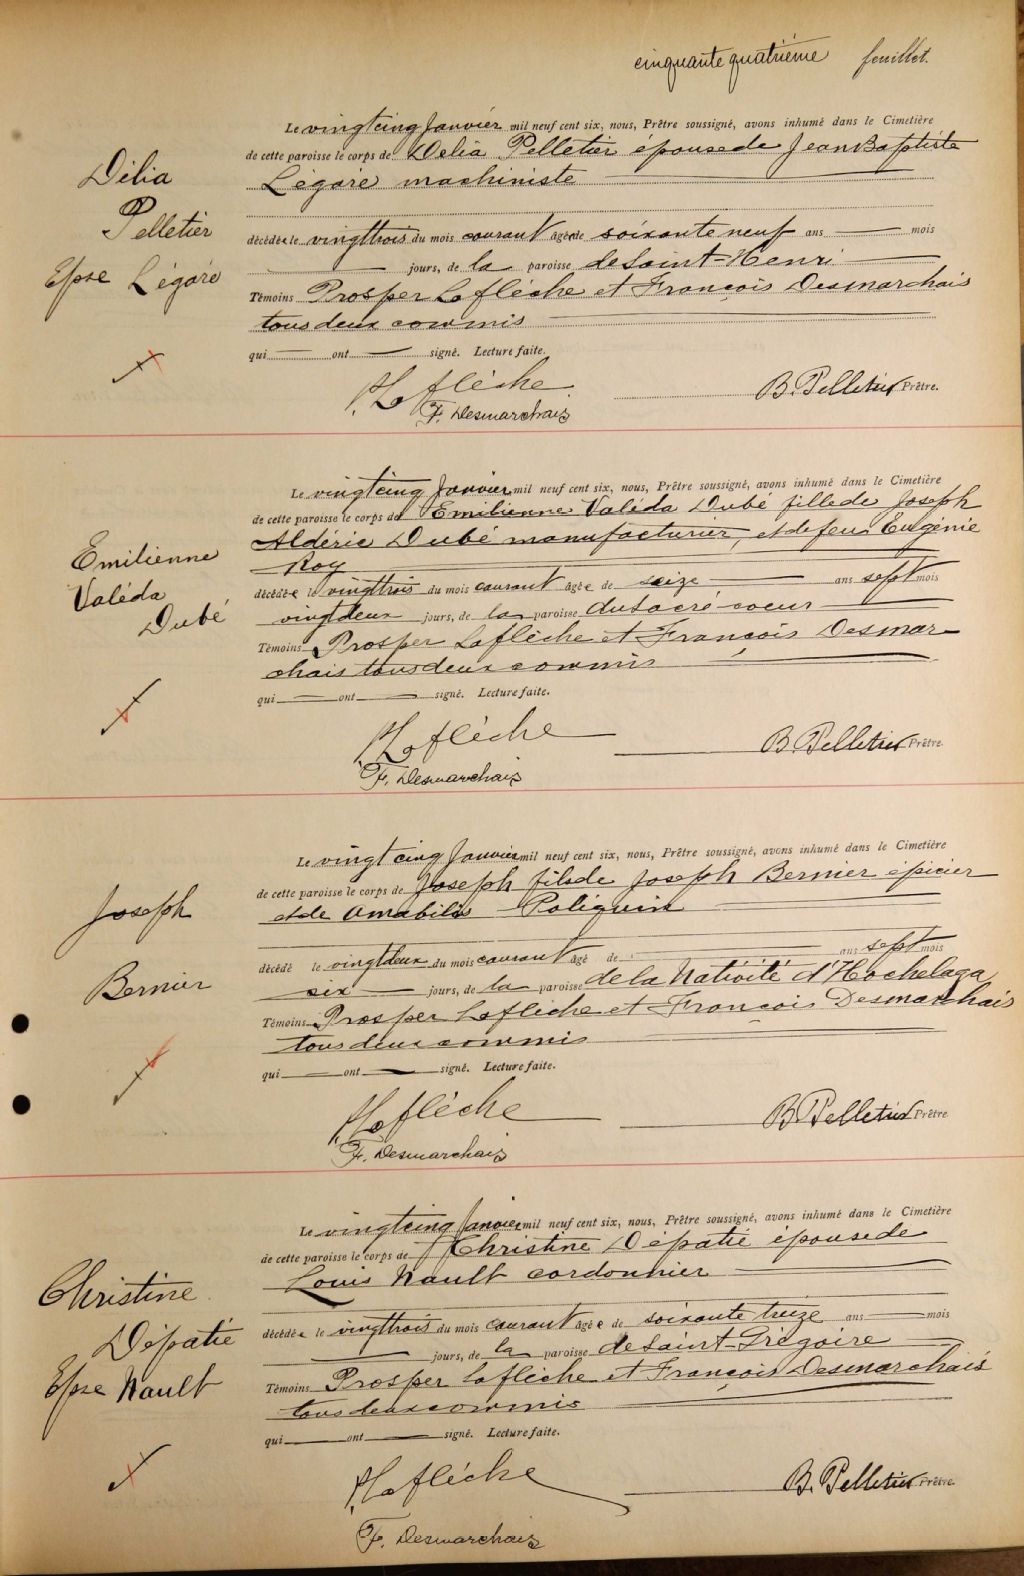 cinquante quatrième feuillet.
Le vingtcinq Janvier mil neuf cent six, nous, Prêtre soussigné, avons inhumé dans le Cimetière
de cette paroisse le corps de Delia Pelletier épouse de Jean Baptiste
Légaré machiniste
Délia
Pelletier
Epse Légaré
décédée le vingttrois du mois courant âgée de soixante neuf ans mois
jours, de la paroisse de Saint-Henri
Témoins Prosper Laflèche et François Desmarchais
tous deux commis
qui ont signé. Lecture faite.
P. Laflèche
F. Desmarchais
B. Pelletier Prêtre.
Le vingtcinq Janvier mil neuf cent six, nous, Prêtre soussigné, avons inhumé dans le Cimetière
de cette paroisse le corps de Emilienne Valéda Dubé fille de Joseph
Aldéric Dubé manufacturier, et de feue Eugénie
Roy
Emilienne
Valéda
Dubé
décédée le vingttrois du mois courant âgée de seize ans sept mois
vingtdeux jours, de la paroisse du Sacré-coeur
Témoins Prosper Laflèche et François Desmar-
chais tous deux commis
qui ont signé. Lecture faite.
P. Laflèche
F. Desmarchais
B. Pelletier Prêtre.
Le vingt cinq Janvier mil neuf cent six, nous, Prêtre soussigné, avons inhumé dans le Cimetière
de cette paroisse le corps de Joseph fils de Joseph Bernier épicier
et de Amabilis Poliquin
Joseph
Bernier
décédé le vingtdeux du mois courant âgé de ans sept mois
six jours, de la paroisse de la Nativité d'Hochelaga
Témoins Prosper Laflèche et François Desmarchais
tous deux commis
qui ont signé. Lecture faite.
P. Laflèche
F. Desmarchais
B. Pelletier Prêtre
Le vingtcinq Janvier mil neuf cent six, nous, Prêtre soussigné, avons inhumé dans le Cimetière
de cette paroisse le corps de Christine Dépatie épouse de
Louis Nault cordonnier
Christine
Dépatie
Epse Nault
décédée le vingttrois du mois courant âgée de soixante treize ans mois
jours, de la paroisse de Saint-Grégoire
Témoins Prosper Laflèche et François Desmarchais
tous deux commis
qui ont signé. Lecture faite.
P. Laflèche
F. Desmarchais
B. Pelletier Prêtre.